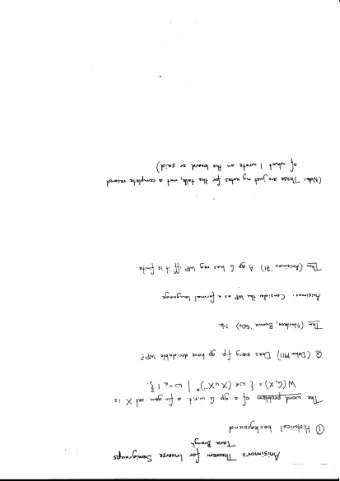 Anisimov's Theorem for Inverse Semigroups
Tara Brough
① Historical background
The word problem of a gp G w.r.t. a f. gen set X is
W(G,X) = { w ∈ (X ∪ X⁻¹)* | w =_G 1 }.
Q (Dehn 1911) Does every f.p. gp have decidable WP?
Thm (Novikov, Boone '50s) No.
Anisimov: Consider the WP as a formal language
Thm (Anisimov '71) A gp G has reg WP iff it is finite.
(Note: These are just my notes for the talk, not a complete record
of what I wrote on the board or said)